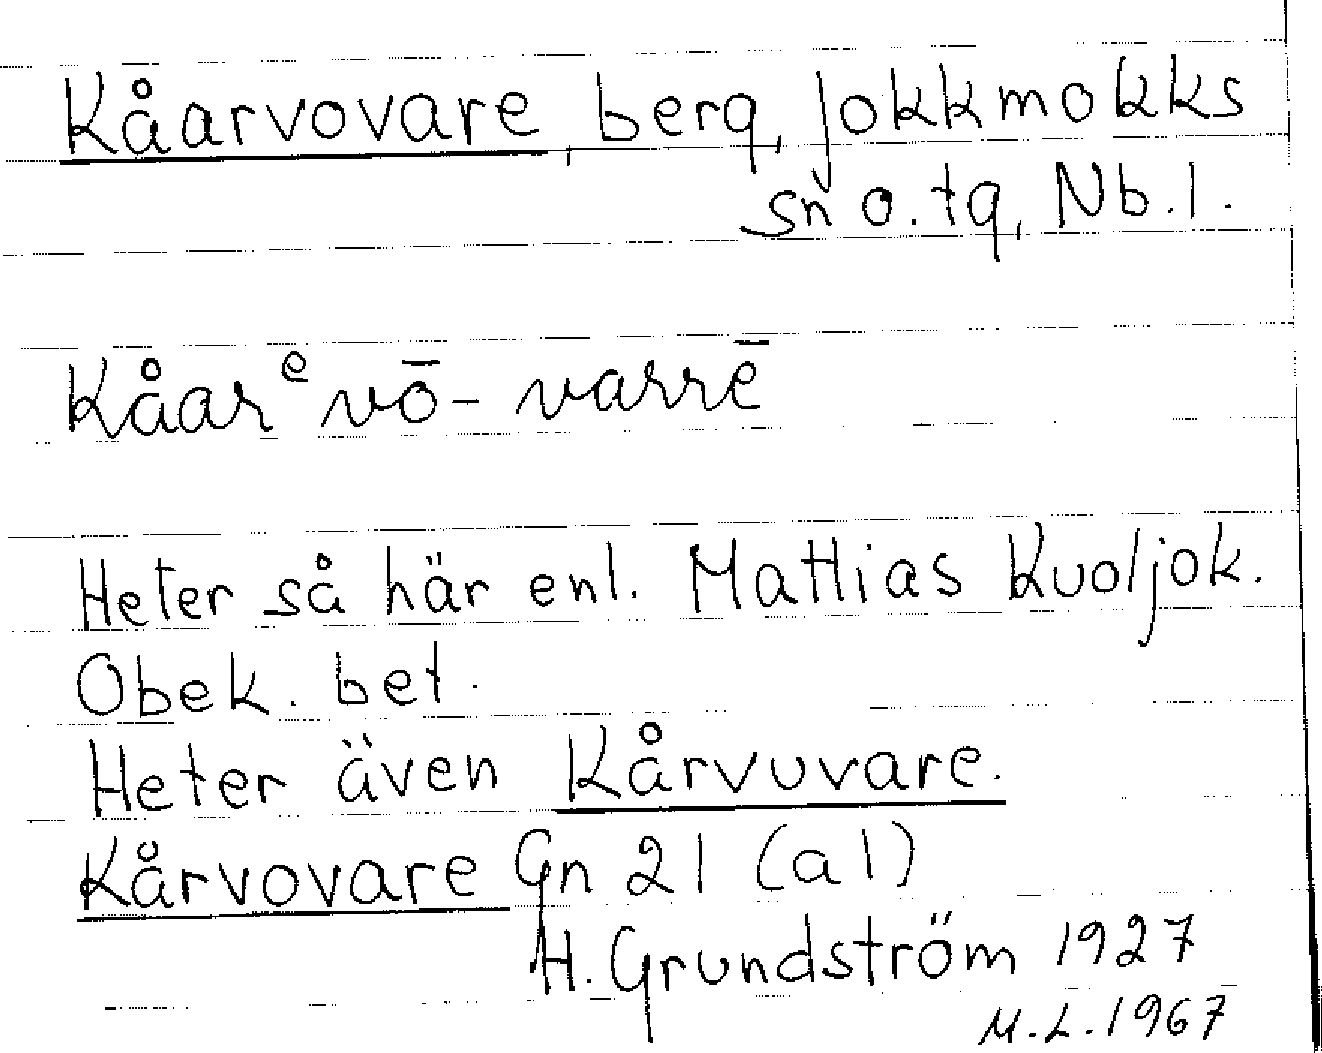 Kåarvovare, berg, Jokkmokks
sn o. tg, Nb. l.
Kåarᵉvō- varrē
Heter så här enl. Mattias Kuoljok.
Obek. bet.
Heter även Kårvuvare.
Kårvovare Gn 21 (a1)
H. Grundström 1927
M.L. 1967